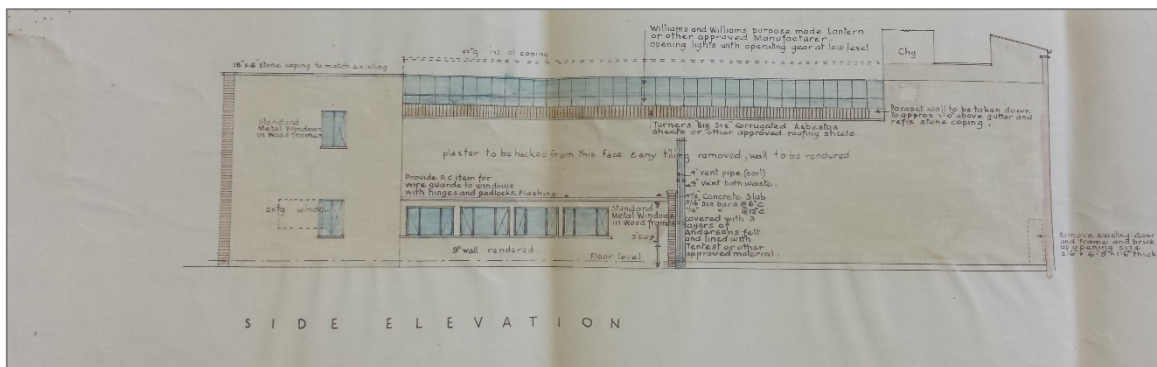 Williams and Williams purpose made Lantern
or other approved Manufacturer.
opening lights with operating gear at low level
extg line of coping
Chy
18"x6" stone coping to match existing
Parapet wall to be taken down
to approx 1'-0" above gutter and
refix stone coping.
Standard
Metal Windows
in Wood frames
Turners "Big Six" Corrugated Asbestos
sheets or other approved roofing sheets.
plaster to be hacked from this face & any tiling removed, wall to be rendered
Provide P.C item for
wire guards to windows
with hinges and padlocks. Flashing
4" vent pipe (soil)
4" vent bath waste.
Concrete Slab
covered with 3
layers of
Andersons felt
and lined with
Tentest or other
approved material.
extg window
Standard
Metal Windows
in Wood frames
9" wall rendered
Floor level
Remove existing door
and frame and brick
up opening size
2'-6" x 6'-9" x 1'-6" thick
SIDE ELEVATION